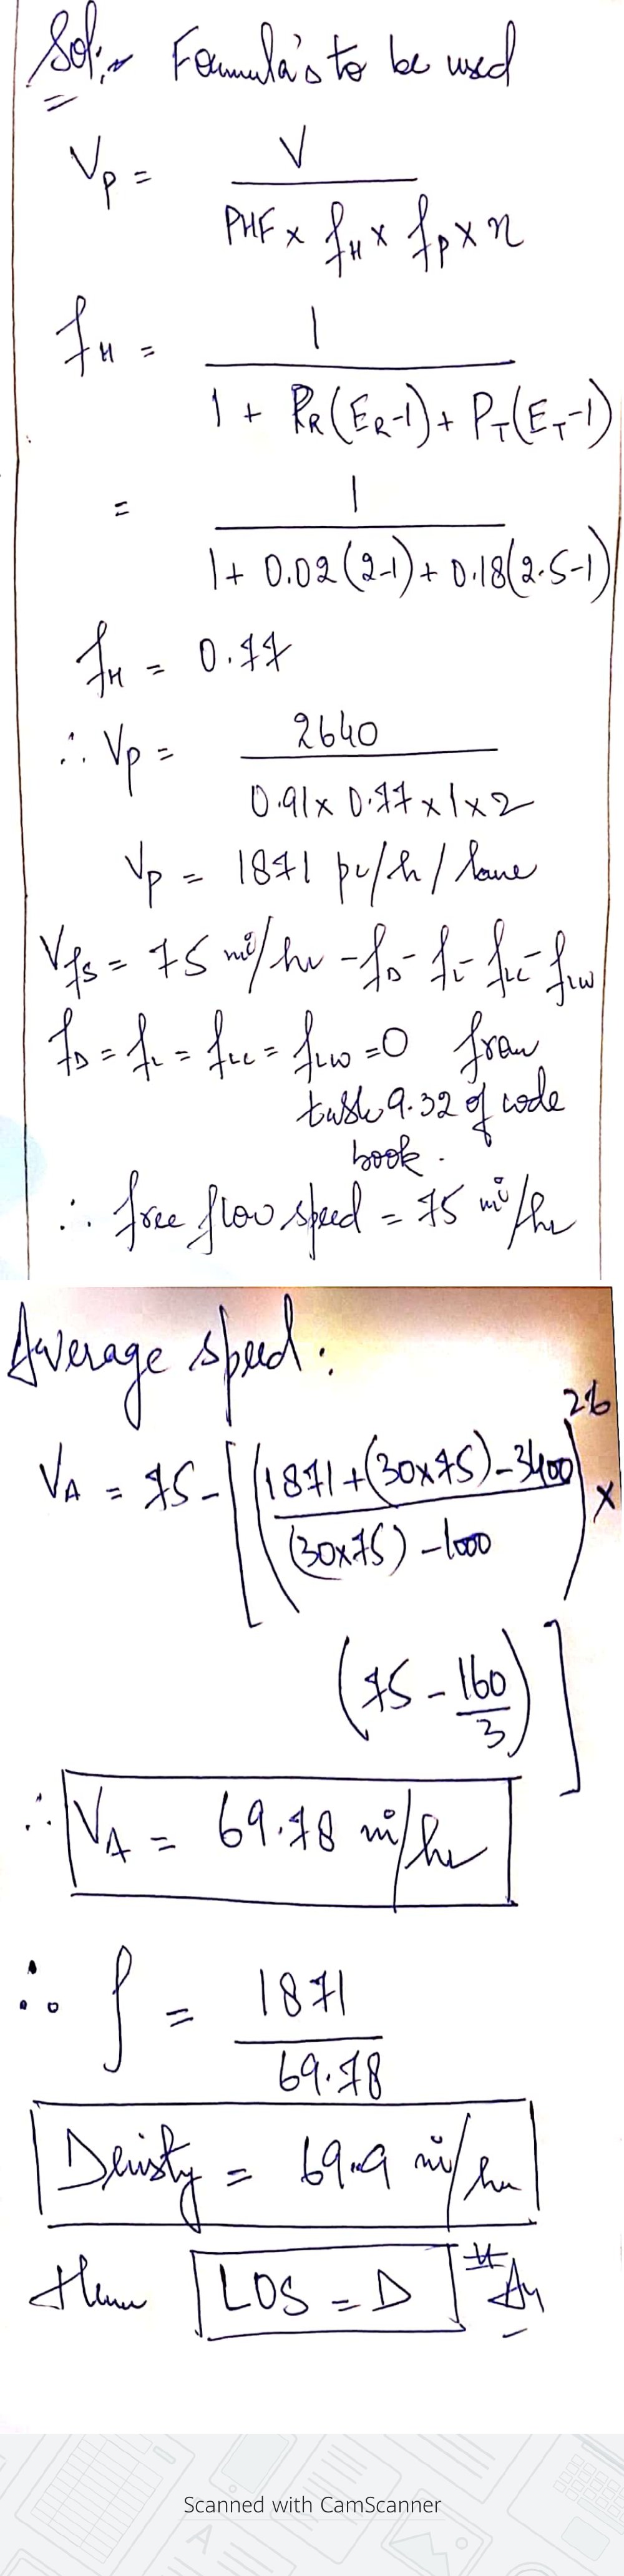 Sol:- Formula's to be used
Vp = V / PHF x fH x fp x n
fH = 1 / 1 + PR(ER-1) + PT(ET-1)
= 1 / 1 + 0.02(2-1) + 0.18(2.5-1)
fH = 0.77
∴ Vp = 2640 / 0.91 x 0.77 x 1 x 2
Vp = 1871 pc/h/lane
Vfs = 75 mi/hr - fD - fL - fLC - fLW
fD = fL = fLC = fLW = 0 from
table 9.32 of code
book.
∴ free flow speed = 75 mi/hr
Average speed:
VA = 75 - [ ( 1871 + (30x75) - 3400 / (30x75) - 1000 )^2.6 x
( 75 - 160/3 ) ]
∴ VA = 69.78 mi/hr
∴ ρ = 1871 / 69.78
Density = 69.9 mi/hr
then LOS = D
Scanned with CamScanner